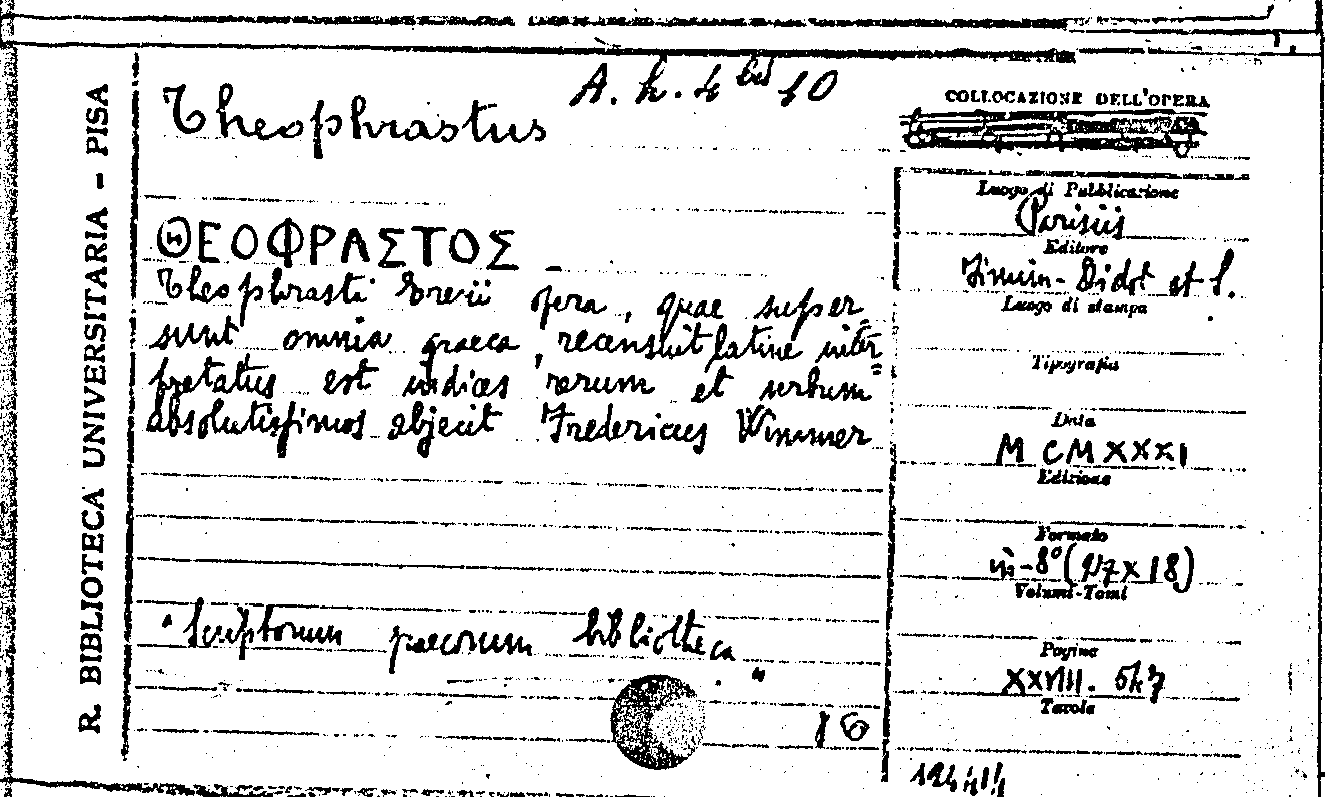 R. BIBLIOTECA UNIVERSITARIA - PISA
A. h. 4 bis 10
Theophrastus
COLLOCAZIONE DELL'OPERA
ΘΕΟΦΡΑΣΤΟΣ
Theophrasti Eresii opera, quae super
sunt omnia graeca, recensuit latine inter=
pretatus est indices rerum et verbum
absolutissimos objecit Fredericus Wimmer
"Scriptorum graecorum bibliotheca."
Luogo di Pubblicazione
Parisiis
Editore
Firmin-Didot et S.
Luogo di stampa
Tipografia
Data
MCMXXXI
Edizione
Formato
in-8° (27x18)
Volumi-Tomi
Pagine
XXVIII. 547
Tavole